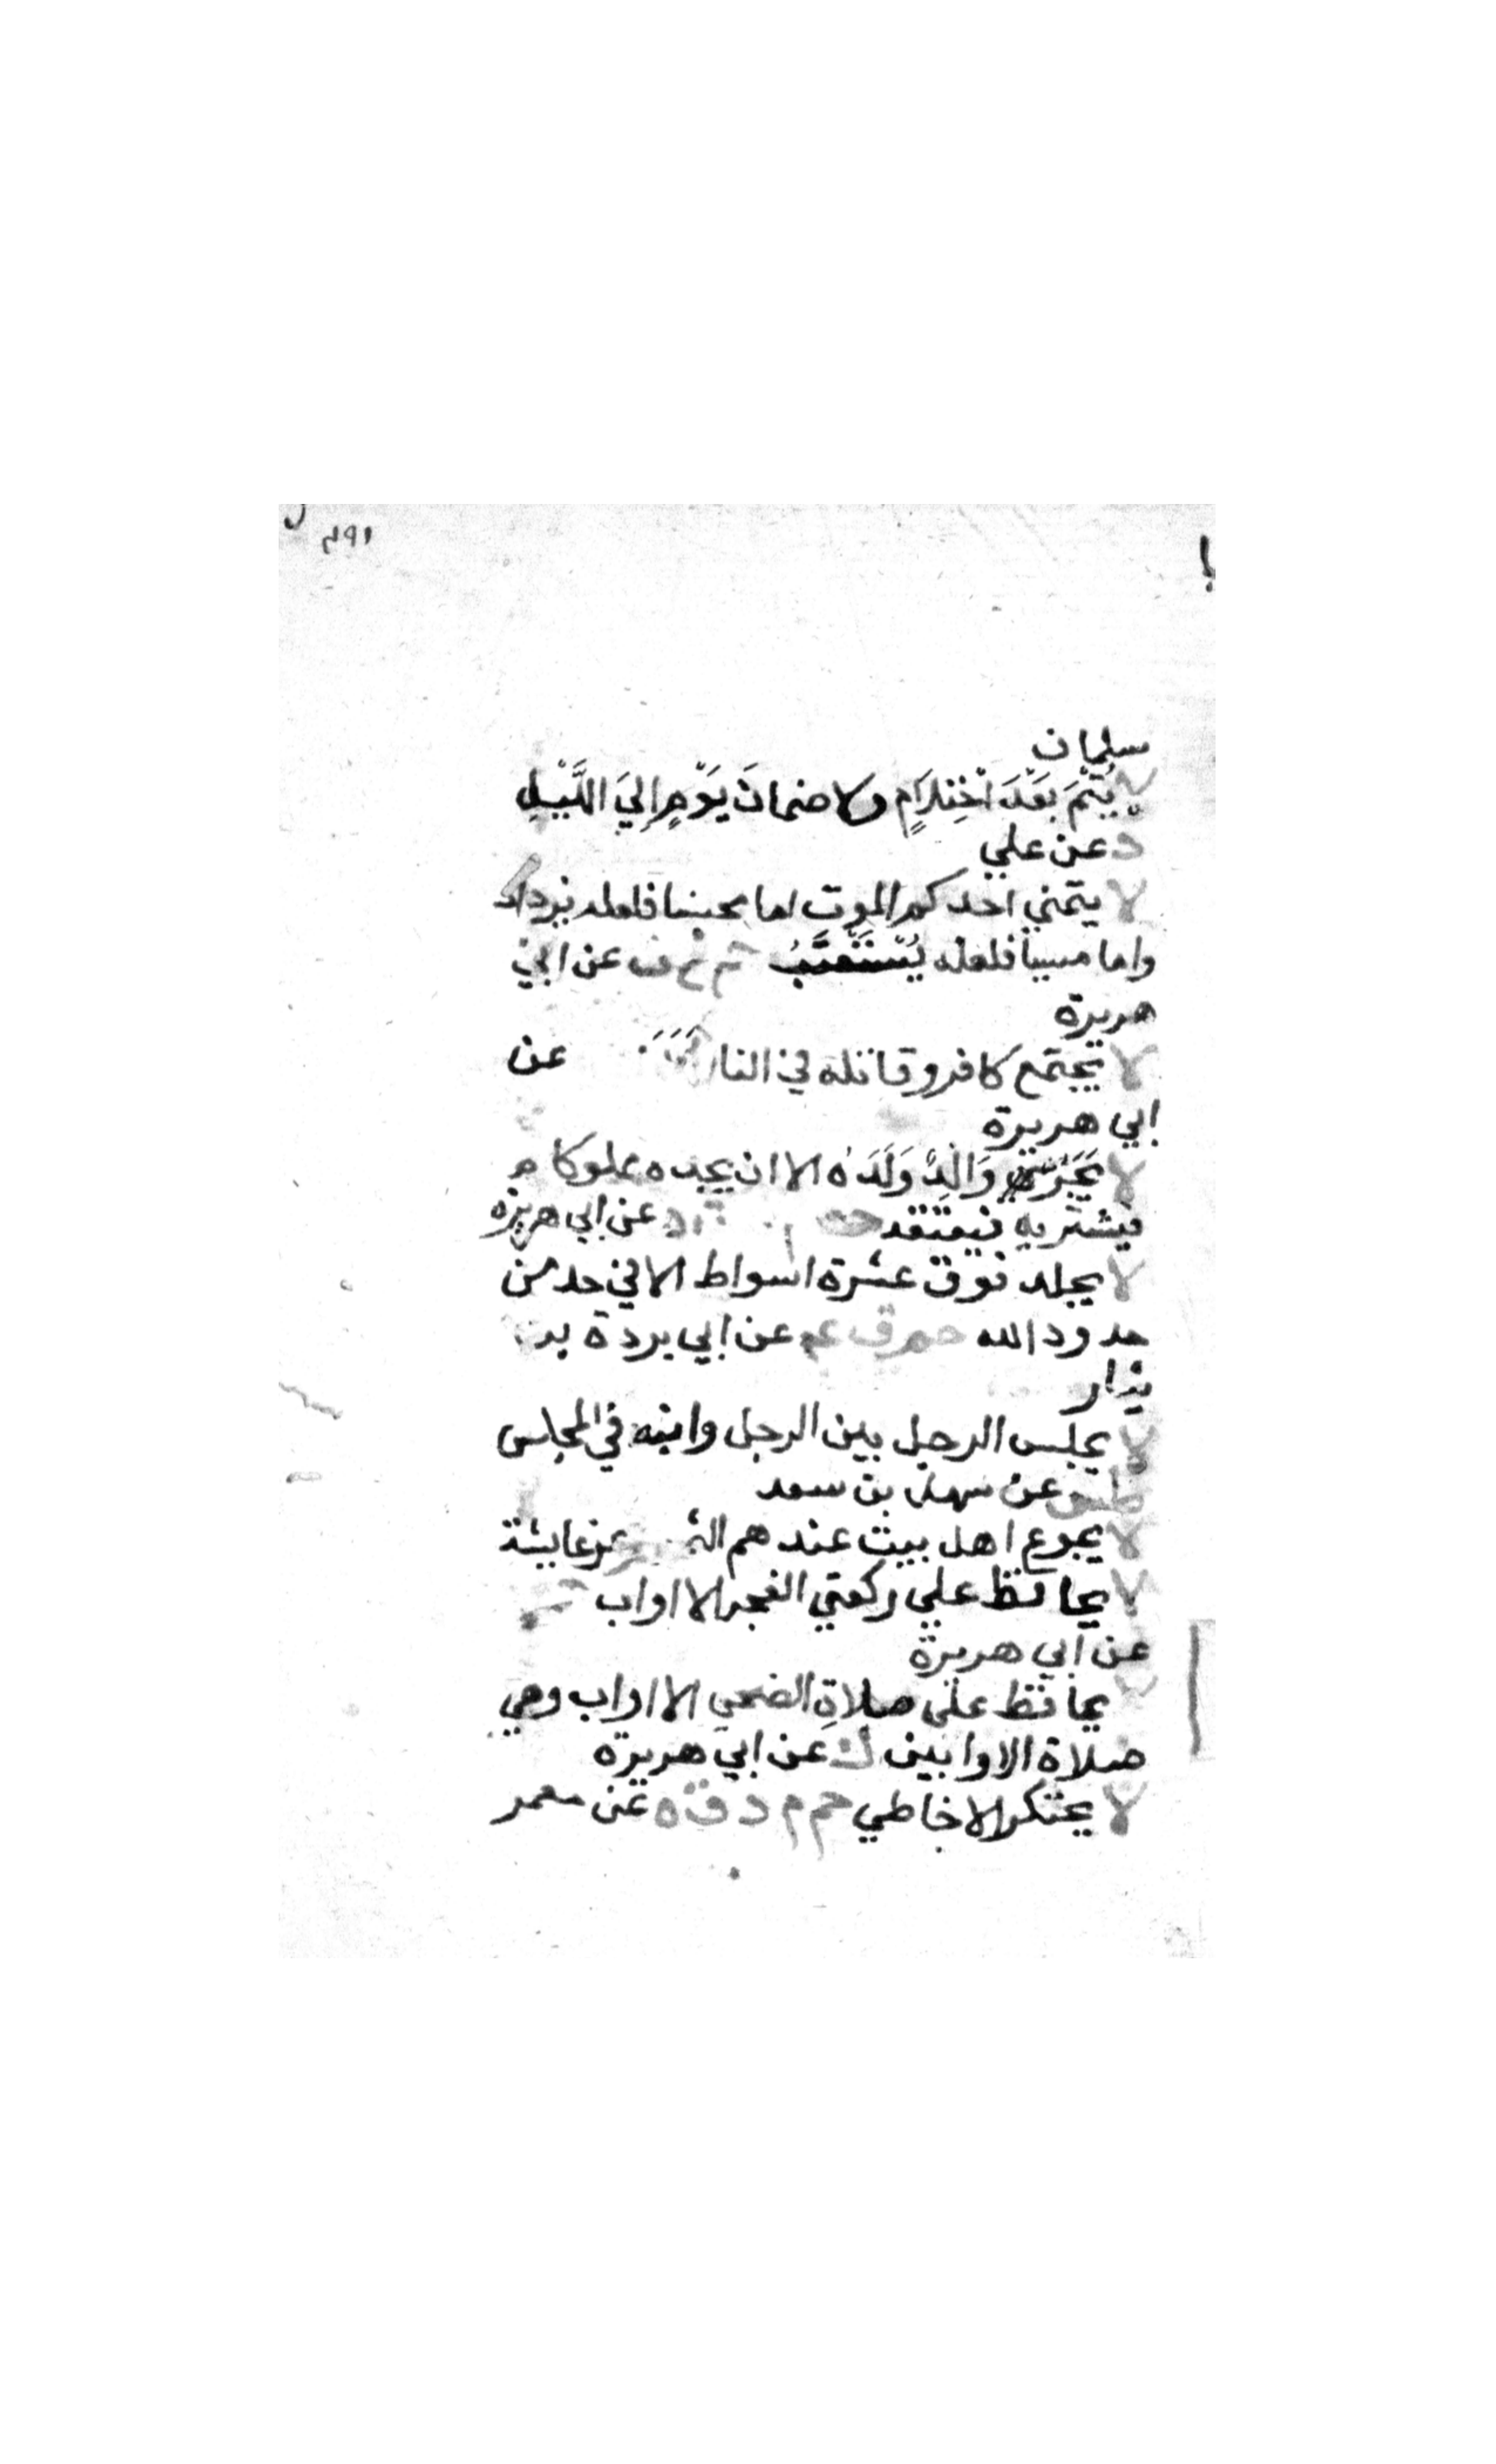 ٢٩١
سلمان
لا يُتْمَ بَعْدَ احْتِلَامٍ ولا ضمانَ يَوْمٍ إِلَيَ اللَّيْلِ
د عن علي
لا يتمني احدكم الموت اما محسنا فلعله يزداد
واما مسيا فلعله يُسْتَعْتَبُ حم خ ن عن ابي
هريرة
لا يجتمع كافر وقاتله في النار عن
ابي هريرة
لا يَجْزِي وَالِدٌ وَلَدَهُ الا ان يجده مملوكا
فيشتريه فيعتقه عن ابي هريرة
لا يجلد فوق عشرة اسواط الا في حد من
حدود الله حم ق عم عن ابي بردة بن
نيار
لا يجلس الرجل بين الرجل وابنه في المجلس
طس عن سهل بن سعد
لا يجوع اهل بيت عندهم عن عايشة
لا يحافظ علي ركعتي الفجر الا اواب
عن ابي هريرة
لا يحافظ على صلاةِ الضحي الا اواب وهي
صلاة الاوابين ك عن ابي هريرة
لا يحتكر الا خاطي حم م د ت ه عن معمر